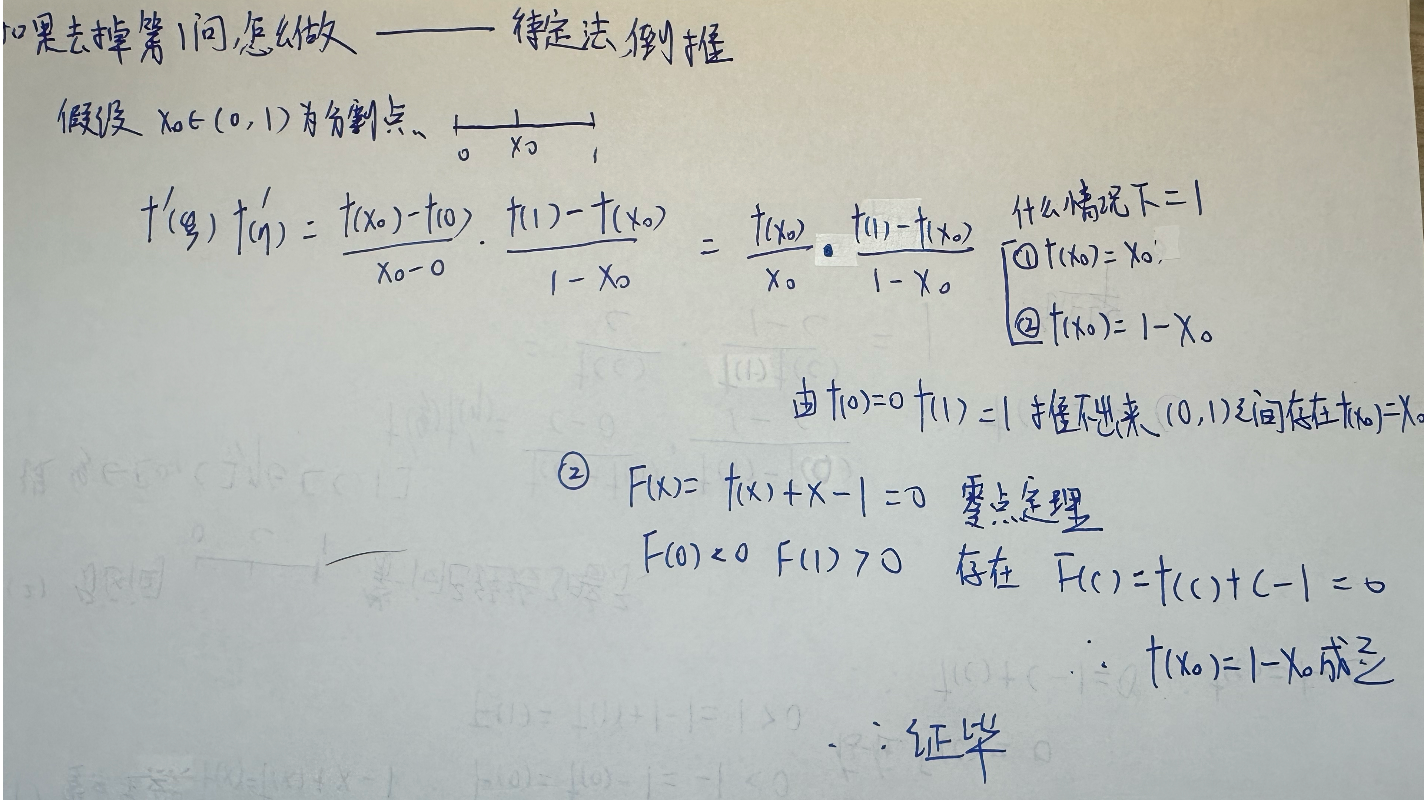 如果去掉第1问,怎么做 —— 待定法,倒推
假设 x₀∈(0,1)为分割点、
0 x₀ 1
f'(ξ) f'(η) = \frac{f(x₀)-f(0)}{x₀-0} · \frac{f(1)-f(x₀)}{1-x₀} = \frac{f(x₀)}{x₀} · \frac{f(1)-f(x₀)}{1-x₀}
什么情况下=1
① f(x₀)=x₀
② f(x₀)=1-x₀
由 f(0)=0 f(1)=1 推不出来 (0,1)之间存在f(x₀)=x₀
② F(x)= f(x)+x-1=0 零点定理
F(0)<0 F(1)>0 存在 F(c)=f(c)+c-1=0
∴ f(x₀)=1-x₀成立
∴ 证毕